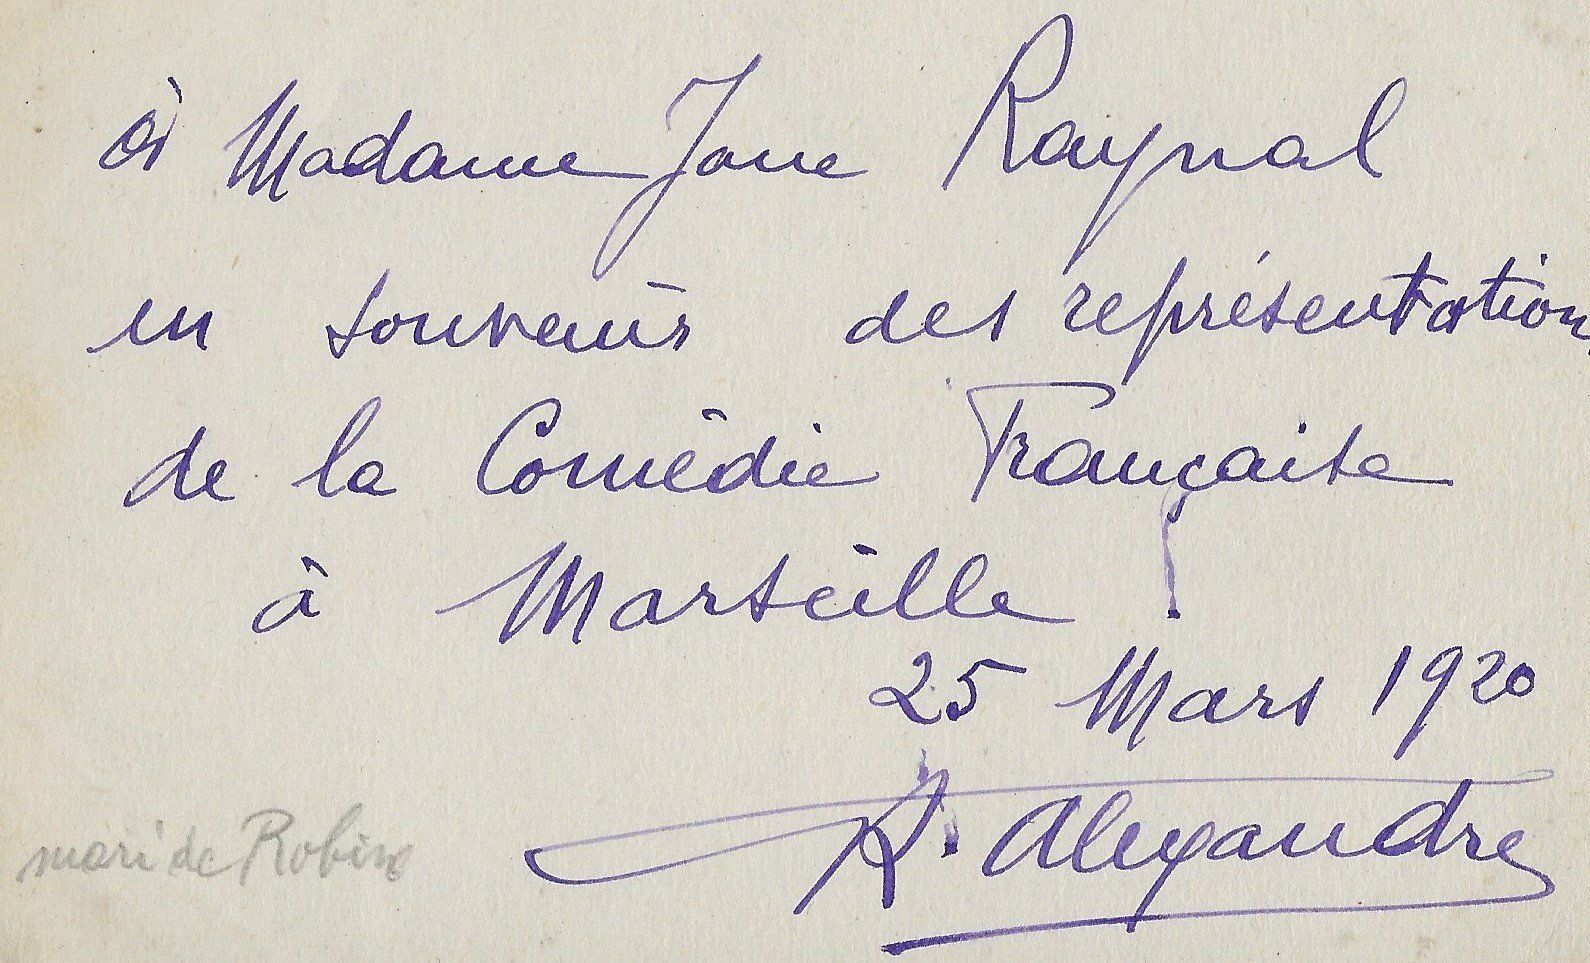 à Madame Jane Raynal
en souvenir des représentations
de la Comédie Française
à Marseille
25 Mars 1920
R. Alexandre
mari de Robinne